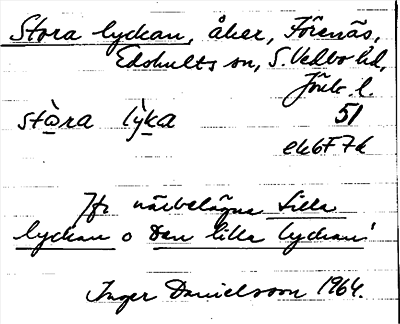 Stora lyckan, åker, Förenäs,
Edshults sn, S. Vedbo hd,
Jönk. l.
stòra lỳka 51
ek6F7k
Jfr närbelägna Lilla
lyckan o Den lilla lyckan!
Inger Danielsson 1964.